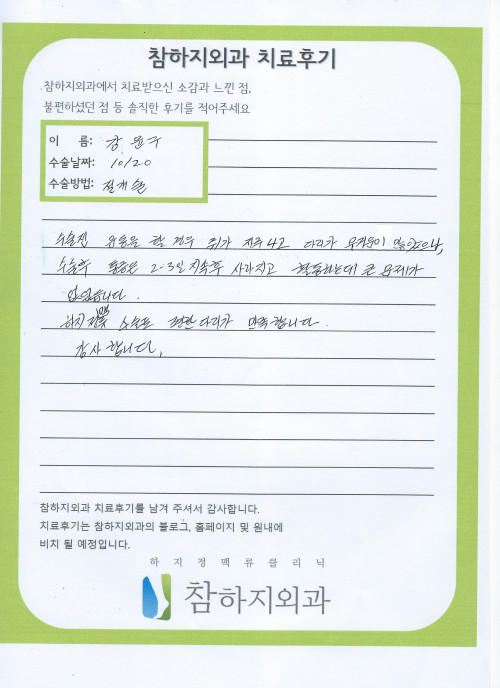 참하지외과 치료후기
참하지외과에서 치료받으신 소감과 느낀 점,
불편하셨던 점 등 솔직한 후기를 적어주세요
이 름: 강
수술날짜: 10/20
수술방법: 절개술
수술전 운동을 할 경우 쥐가 자주 나고 다리가 무거움이 있었으나,
수술후 통증은 2-3일 지속후 사라지고 활동하는데 큰 문제가
없었습니다.
하지정맥 수술로 편한 다리가 만족합니다.
감사합니다.
참하지외과 치료후기를 남겨 주셔서 감사합니다.
치료후기는 참하지외과의 블로그, 홈페이지 및 원내에
비치 될 예정입니다.
하지정맥류클리닉
참하지외과